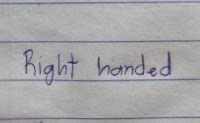 Right handed